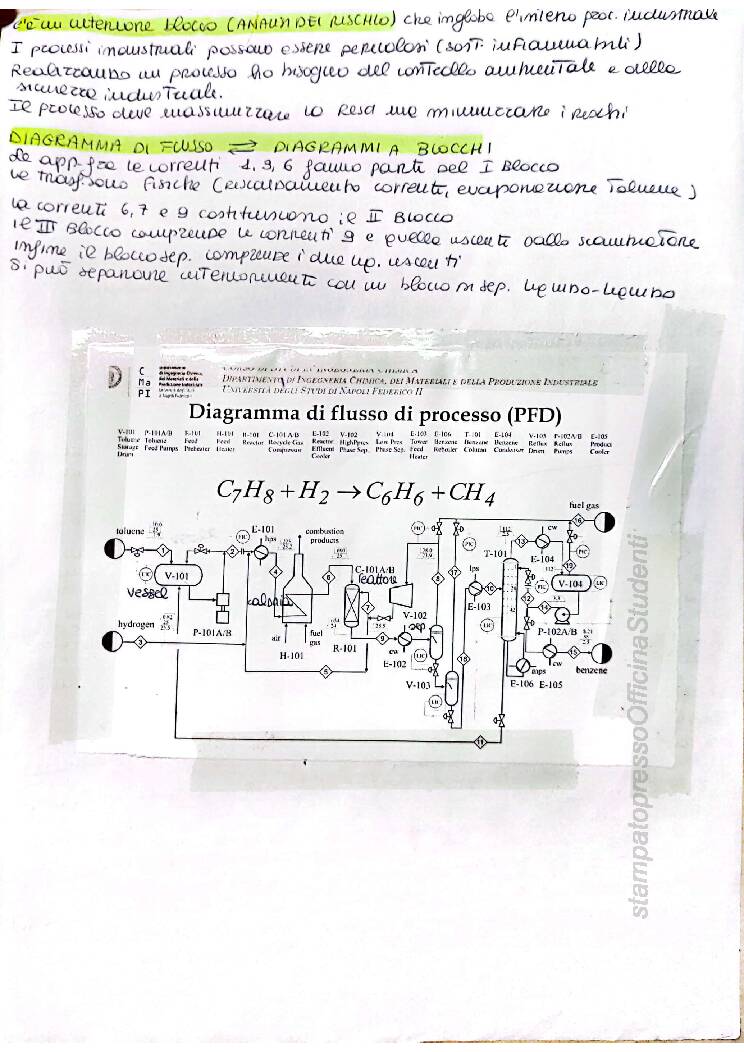 c'è un ulteriore blocco (ANALISI DEI RISCHIO) che ingloba l'intero proc. industriale
I processi industriali possono essere pericolosi (sost. infiammabili)
Realizzando un processo ho bisogno del controllo ambientale e della
sicurezza industriale.
Il processo deve massimizzare la resa ma minimizzare i rischi
DIAGRAMMA DI FLUSSO ⇌ DIAGRAMMI A BLOCCHI
le correnti 1, 3, 6 fanno parte del I Blocco
le trasf. sono fisiche (riscaldamento correnti, evaporazione Toluene)
le correnti 6, 7 e 9 costituiscono il II Blocco
il III Blocco comprende le correnti 9 e quelle uscenti dallo scambiatore
infine il blocco sep. comprende i due uscenti
Si può separare ulteriormente con un blocco sep. liquido-liquido
DIPARTIMENTO DI INGEGNERIA CHIMICA, DEI MATERIALI E DELLA PRODUZIONE INDUSTRIALE
UNIVERSITÀ DEGLI STUDI DI NAPOLI FEDERICO II
Diagramma di flusso di processo (PFD)
V-101 P-101A/B E-101 H-101 R-101 C-101 A/B E-102 V-102 V-104 E-103 E-106 T-101 E-104 V-103 P-102A/B E-105
Toluene Toluene Feed Feed Reactor Recycle Gas Reactor HighPres Low Pres Tower Benzene Benzene Benzene Reflux Reflux Product
Storage Feed Pumps Preheater Heater Compressor Effluent Phase Sep. Phase Sep. Feed Reboiler Column Condenser Drum Pumps Cooler
Drum Cooler Heater
C₇H₈ + H₂ → C₆H₆ + CH₄
fuel gas
toluene
E-101
hps
combustion
products
C-101A/B
reattore
T-101
cw
E-104
V-101
vessel
caldaia
lps
E-103
V-104
V-102
sep
P-101A/B
hydrogen
air
fuel
gas
H-101
R-101
cw
E-102
V-103
P-102A/B
cw
mps
E-106 E-105
benzene
stampatopressoOfficinaStudenti